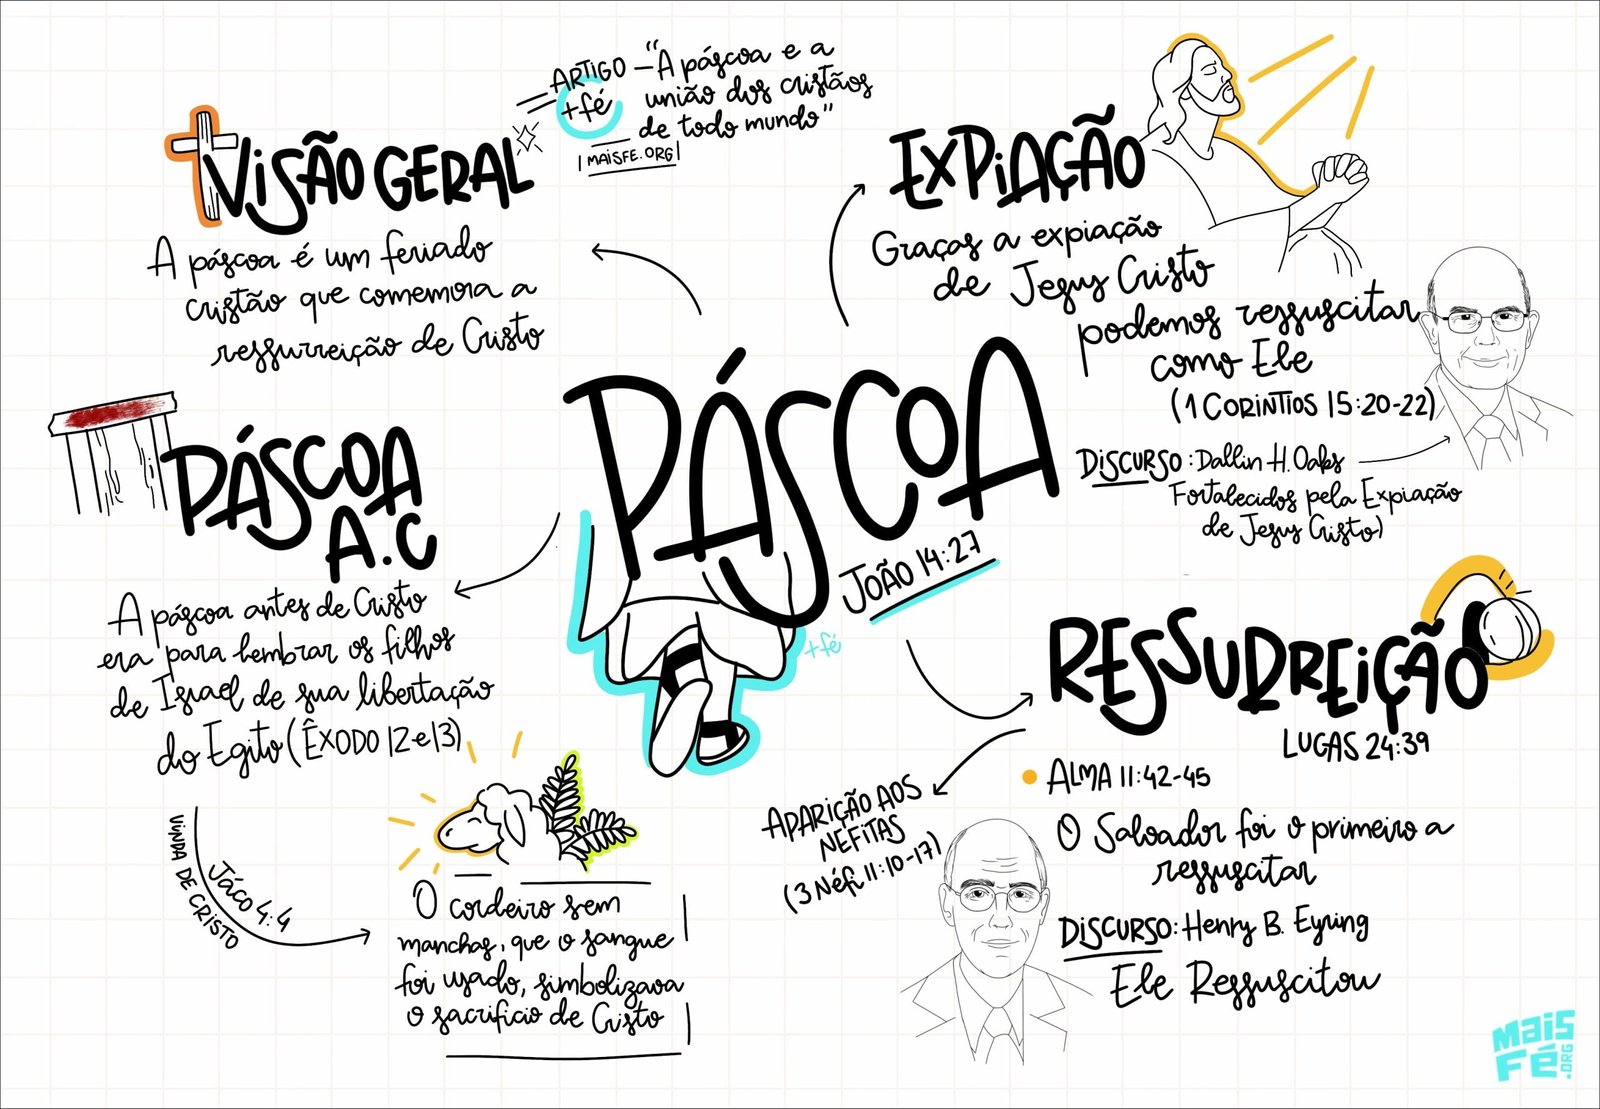 VISÃO GERAL
A páscoa é um feriado
cristão que comemora a
ressurreição de Cristo
ARTIGO
+fé
— "A páscoa e a
união dos cristãos
de todo mundo"
| MAISFE.ORG |
EXPIAÇÃO
Graças a expiação
de Jesus Cristo
podemos ressuscitar
como Ele
(1 CORINTIOS 15:20-22)
DISCURSO: Dallin H. Oaks
Fortalecidos pela Expiação
de Jesus Cristo)
PÁSCOA
JOÃO 14:27
+fé
PÁSCOA
A.C
A páscoa antes de Cristo
era para lembrar os filhos
de Israel de sua libertação
do Egito (ÊXODO 12 e 13)
VINDA DE CRISTO
JÁCO 4:4
O cordeiro sem
manchas, que o sangue
foi usado, simbolizava
o sacrifício de Cristo
RESSURREIÇÃO
LUCAS 24:39
ALMA 11:42-45
O Salvador foi o primeiro a
ressuscitar
DISCURSO: Henry B. Eyring
Ele Ressuscitou
APARIÇÃO AOS
NEFITAS
(3 Néfi 11:10-17)
MAIS
FÉ.ORG